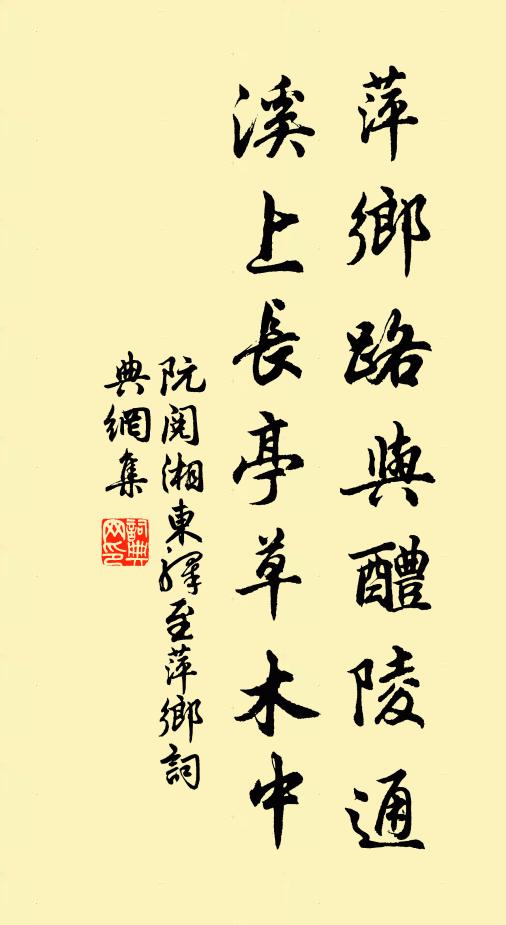 萍鄉路與醴陵通
溪上長亭草木中
阮閱湘東驛至萍鄉詞
典網集
詞典
网印